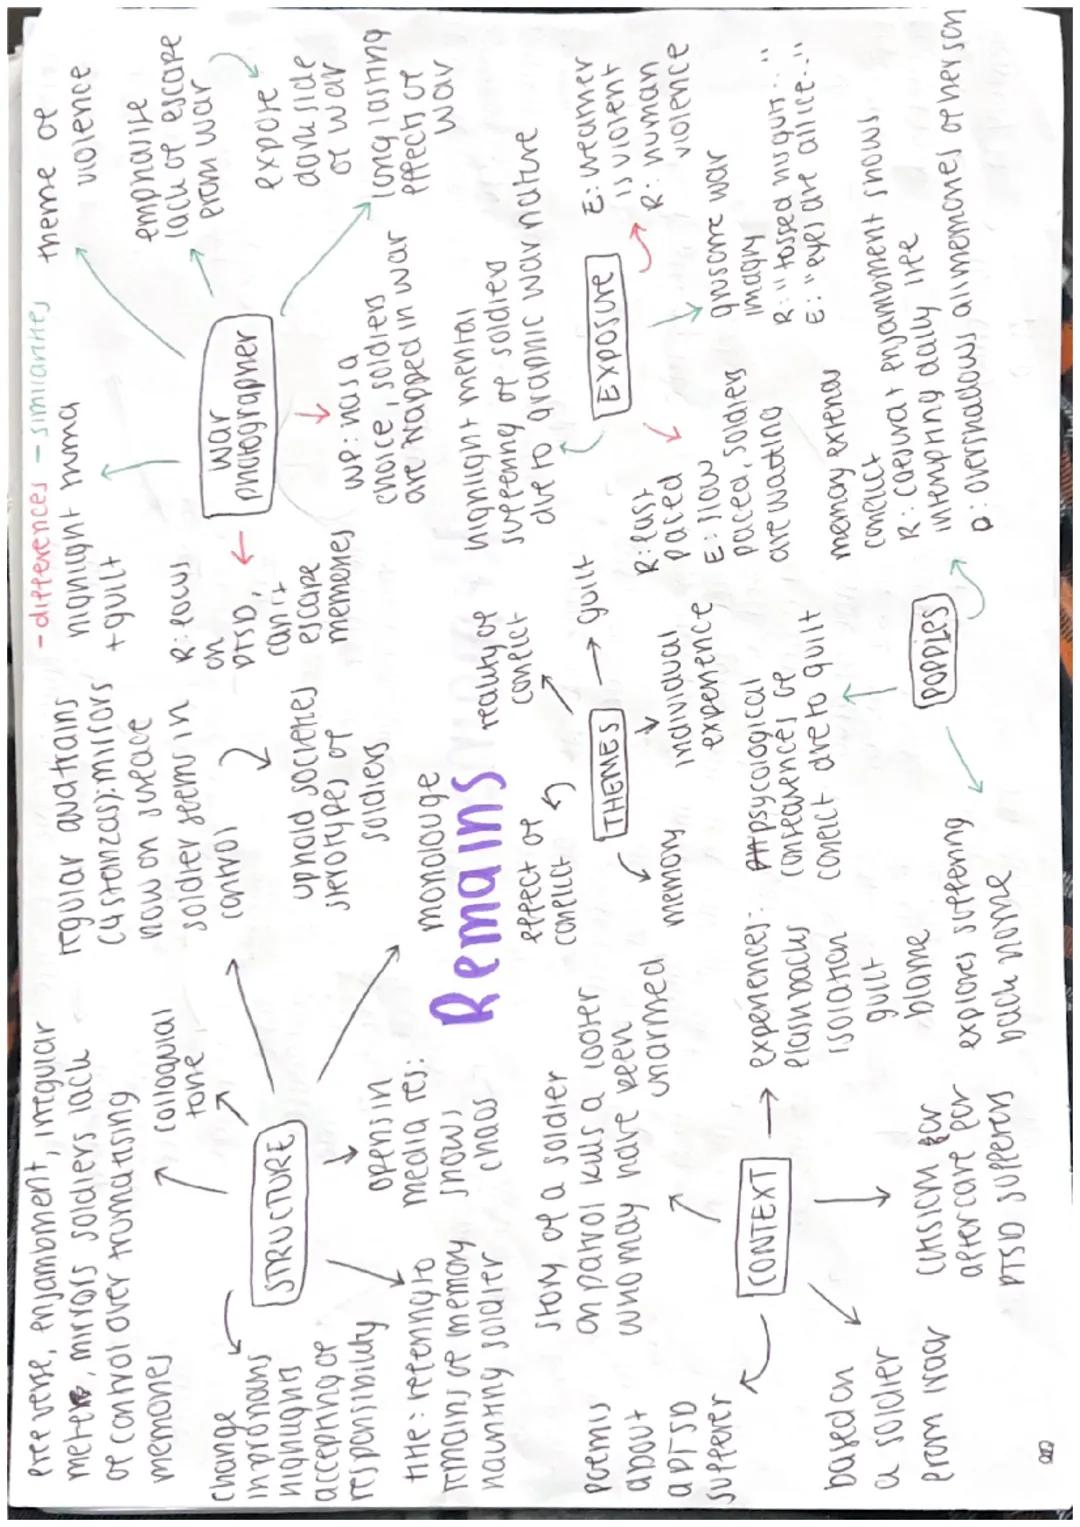 free verse, enjambment, irregular
meter, mirrors soldiers lack
of control over trumatising
memories
colloquial
tone
regular quatrains
(4 stanzas): mirrors
how on surface
soldier seems in
control
uphold societies
sterotypes of
soldiers
STRUCTURE
change
in pronouns
highlights
accepting of
responsibility
title: referring to
remains of memory
haunting soldier
opens in
media res:
shows
chaos
monolouge
Remains
-differences
-similarities
highlight truma
+ guilt
theme of
violence
emphasise
lack of escape
from war
expose
dark side
of war
long lasting
effect of
war
War
photographer
R: focus
on
PTSD,
can't
escape
memories
WP: has a
choice, soldiers
are trapped in war
THEMES
effect of
conflict
reality of
conflict
guilt
individual
experience
memory
EXPOSURE
highlight mental
suffering of soldiers
due to graphic war nature
E: weather
is violent
R: human
violence
R: fast
paced
E: slow
paced, soldiers
are waiting
grusome war
imagry
R: "tossed his guts..."
E: "eyes are all ice..."
story of a soldier
on patrol kills a looter
who may have been
unarmed
CONTEXT
poem is
about
a PTSD
sufferer
based on
a soldier
from Iraq
criticism for
aftercare for
PTSD sufferers
experiences:
flashbacks
isolation
guilt
blame
POPPIES
psycological
consequences of
conflict due to guilt
explores suffering
back home
memory extends
conflict
R: caesura + enjambment shows
interupting daily life
P: overshadows all memories of her son